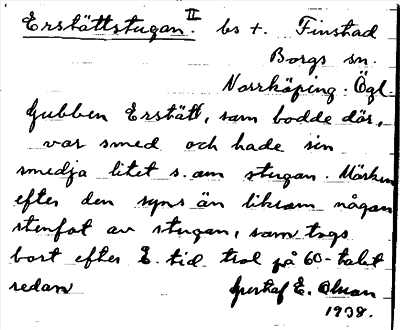 Erstättstugan. II bs +. Finstad
Borgs sn.
Norrköping. Ögl.
Gubben Erstätt, som bodde där,
var smed och hade sin
smedja litet s. om stugan. Märken
efter den syns än liksom någon
stenfot av stugan, som togs
bort efter E. tid trol på 60-talet
redan Gustaf E. Olsson
1938.